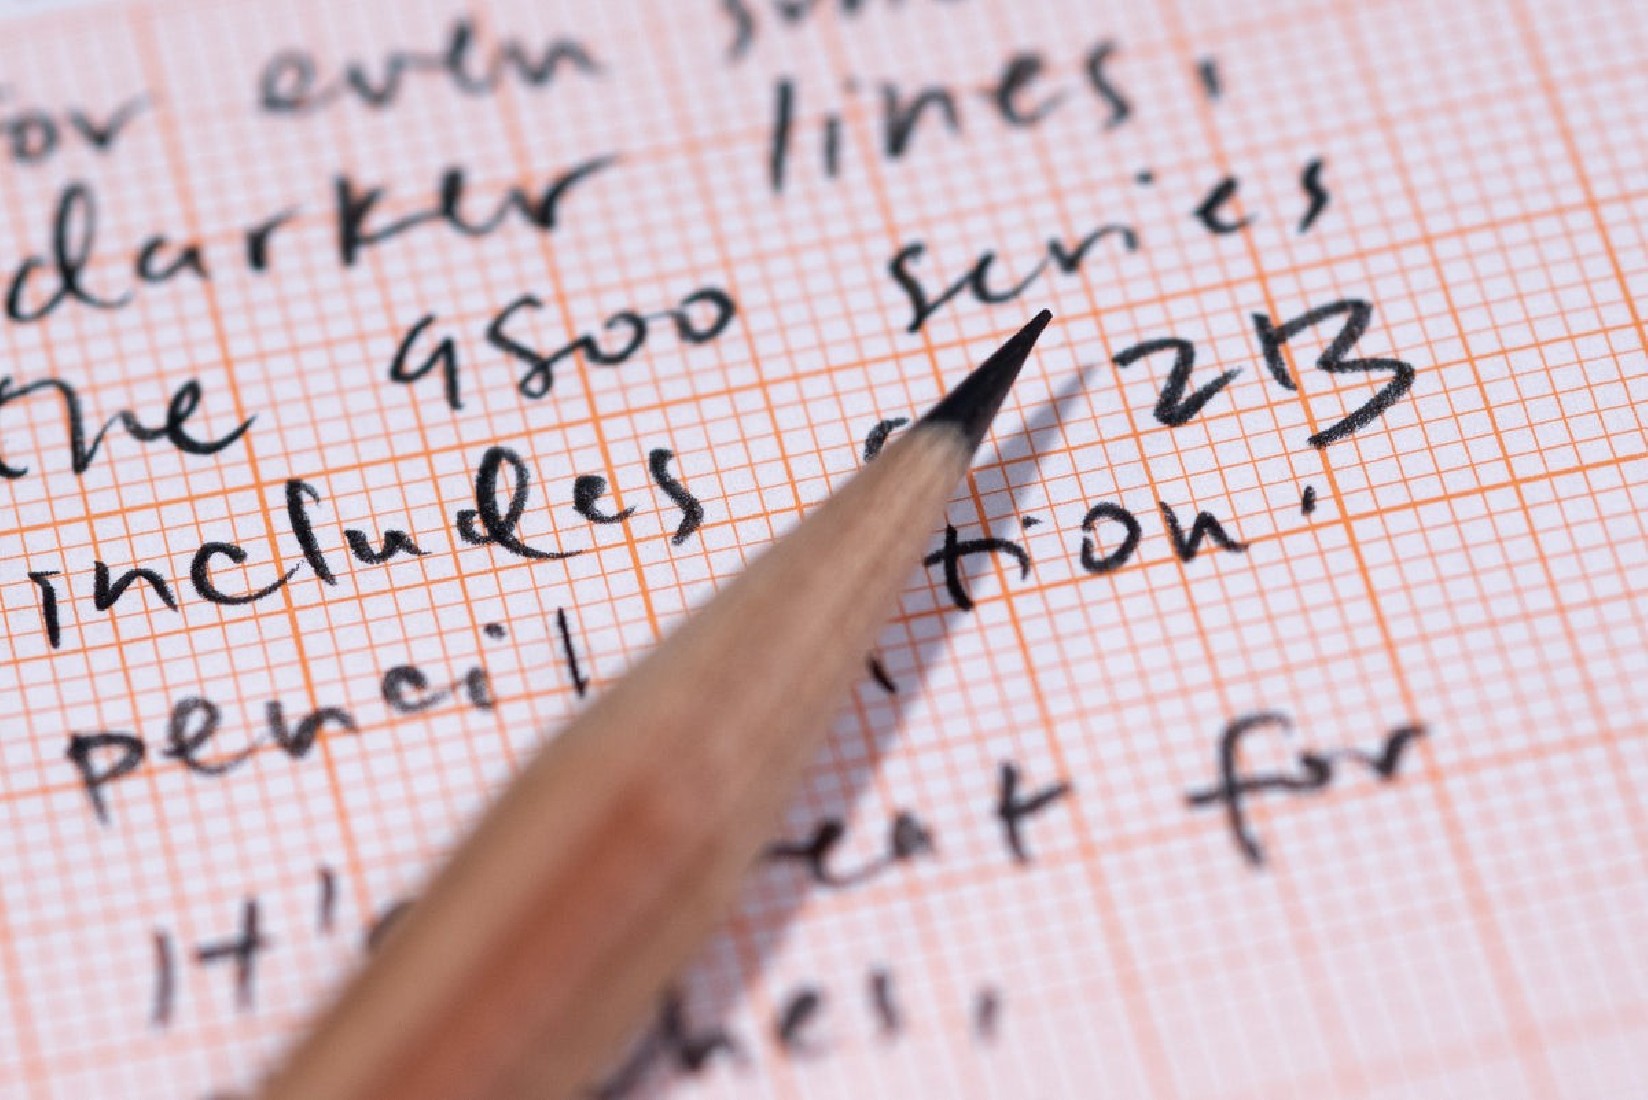 for even some
darker lines,
the 9800 series
includes a 2B
pencil tion!
It's great for